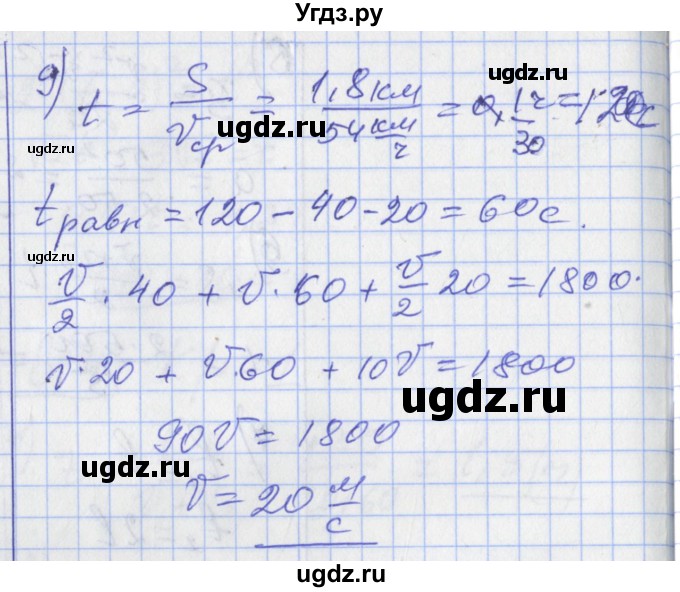 Угдз.ру
9) t = S/Vср = 1,8 км / 54 км/ч = 1/30 ч = 120 с
ugdz.ru ugdz.ru ugdz.ru
t равн = 120 - 40 - 20 = 60 с.
ugdz.ru
V/2 · 40 + V · 60 + V/2 20 = 1800.
ugdz.ru
V · 20 + V · 60 + 10V = 1800
ugdz.ru
90V = 1800
ugdz.ru
V = 20 м/с
ugdz.ru
ugdz.ru